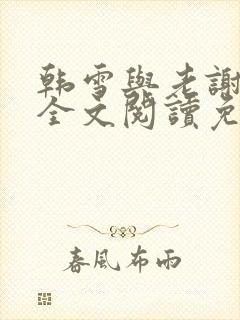 韩雪與老謝
全文閱讀免
春風布雨